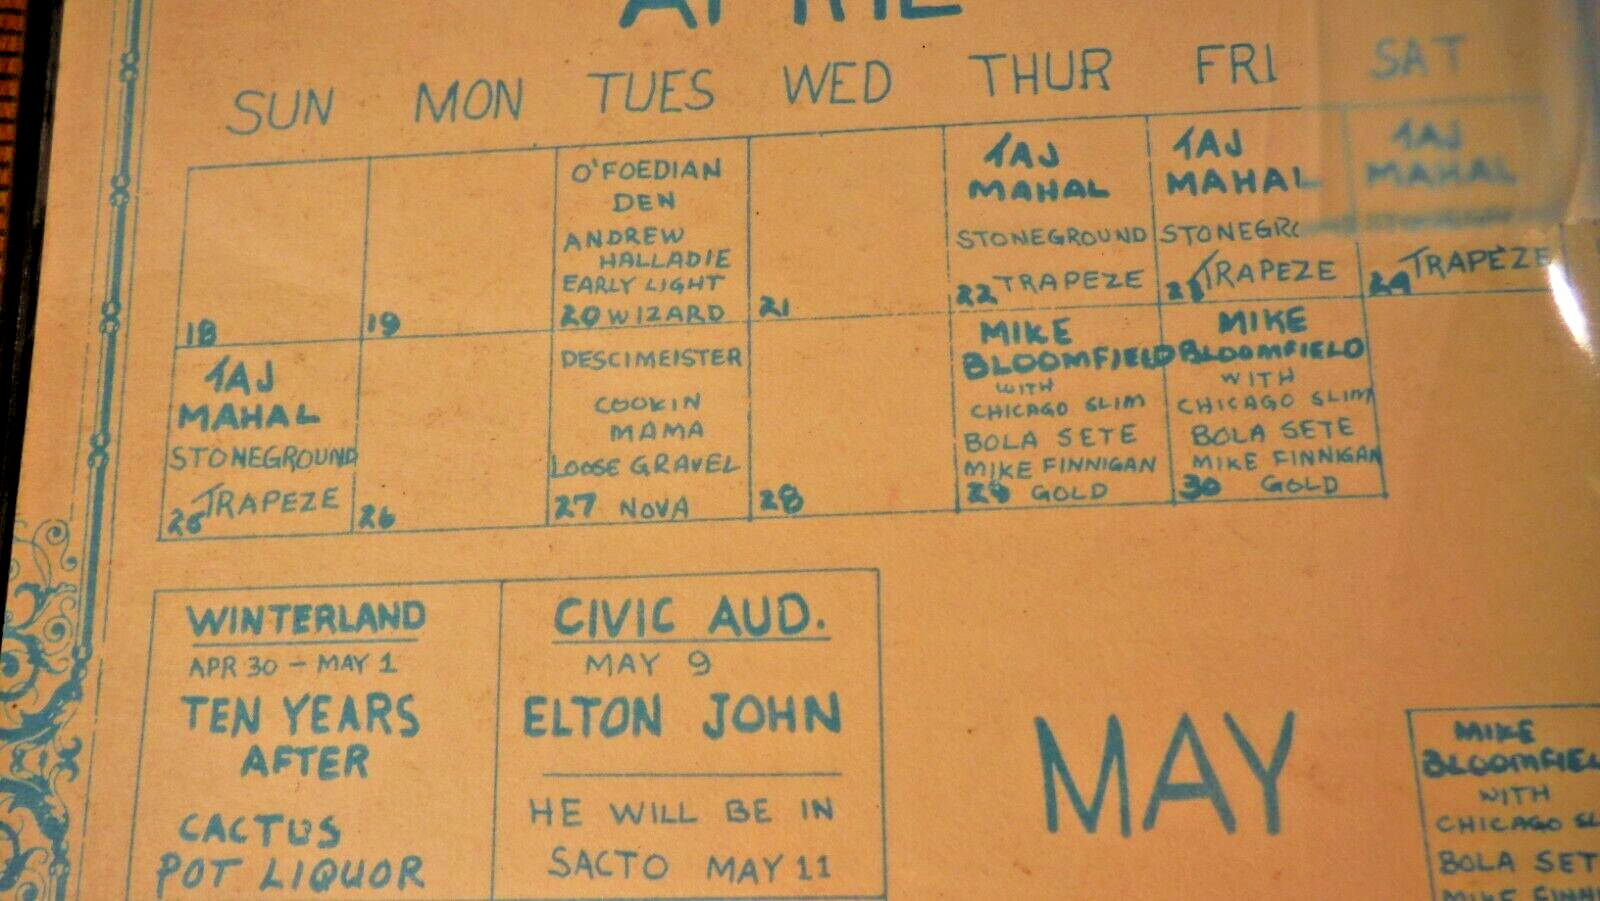 APRIL
SUN MON TUES WED THUR FRI SAT
18
19
O'FOEDIAN
DEN
ANDREW
HALLADIE
EARLY LIGHT
20 WIZARD
21
TAJ
MAHAL
STONEGROUND
22 TRAPEZE
TAJ
MAHAL
STONEGRO
TRAPEZE
TAJ
MAHAL
TRAPEZE
TAJ
MAHAL
STONEGROUND
25 TRAPEZE
26
DESCIMEISTER
COOKIN
MAMA
LOOSE GRAVEL
27 NOVA
28
MIKE
BLOOMFIELD
WITH
CHICAGO SLIM
BOLA SETE
MIKE FINNIGAN
29 GOLD
MIKE
BLOOMFIELD
WITH
CHICAGO SLIM
BOLA SETE
MIKE FINNIGAN
30 GOLD
WINTERLAND
APR 30 – MAY 1
TEN YEARS
AFTER
CACTUS
POT LIQUOR
CIVIC AUD.
MAY 9
ELTON JOHN
HE WILL BE IN
SACTO MAY 11
MAY
MIKE
BLOOMFIEL
WITH
CHICAGO SL
BOLA SET
MIKE FINNI